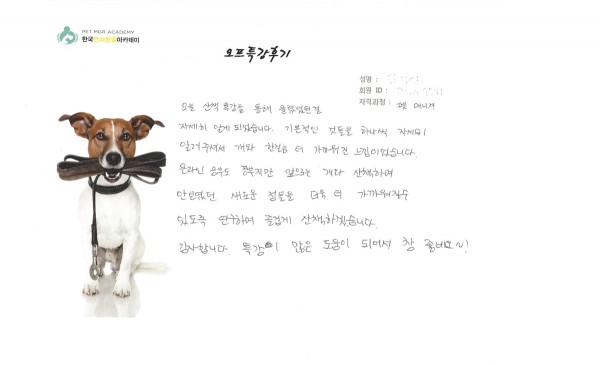 PET MGR ACADEMY
한국반려동물아카데미
오프특강후기
성명 :
회원 ID :
자격과정 : 펫 매니저
오늘 산책 특강을 통해 몰랐었던걸
자세히 알게 되었습니다. 기본적인 것들을 하나씩 자세히
알려주셔서 개와 한걸음 더 가까워진 느낌이었습니다.
온라인 공부도 했지만 앞으로는 개와 산책하며
안보였던 새로운 점들을 더욱 더 가까워질수
있도록 연구하며 즐겁게 산책하겠습니다.
감사합니다. 특강이 많은 도움이 되어서 참 좋네요~!